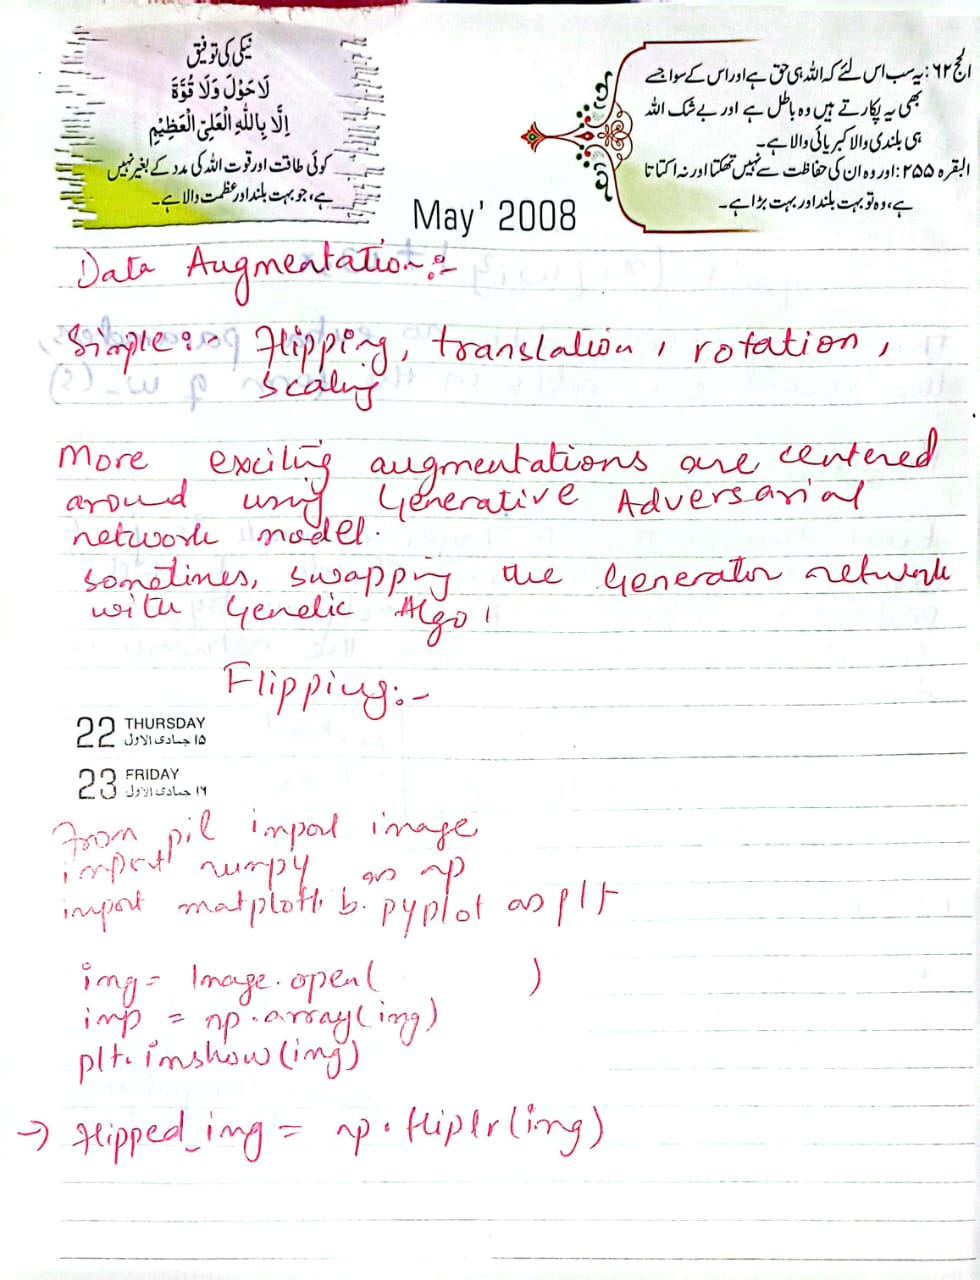 نیکی کی توفیق
لَا حَوْلَ وَلَا قُوَّةَ
اِلَّا بِاللّٰهِ الْعَلِیِّ الْعَظِیْمِ
کوئی طاقت اور قوت اللہ کی مدد کے بغیر نہیں
ہے، جو بہت بلند اور عظمت والا ہے۔
الحج ۶۲: یہ سب اس لئے کہ اللہ ہی حق ہے اور اس کے سوا جسے
بھی یہ پکارتے ہیں وہ باطل ہے اور بے شک اللہ
ہی بلندی والا کبریائی والا ہے۔
البقرہ ۲۵۵: اور وہ ان کی حفاظت سے نہیں تھکتا اور نہ اکتاتا
ہے، وہ تو بہت بلند اور بہت بڑا ہے۔
May' 2008
Data Augmentation:-
Simple:- Flipping, translation, rotation,
scaling
More exciting augmentations are centered
around using Generative Adversarial
network model.
sometimes, swapping the Generator network
with Genetic Algo.
Flipping:-
22 THURSDAY
۱۵ جمادی الاول
23 FRIDAY
۱۶ جمادی الاول
From pil import image
import numpy as np
import matplotlib.pyplot as plt
img = Image.open( )
imp = np.array(img)
plt.imshow(img)
→ flipped_img = np.fliplr(img)